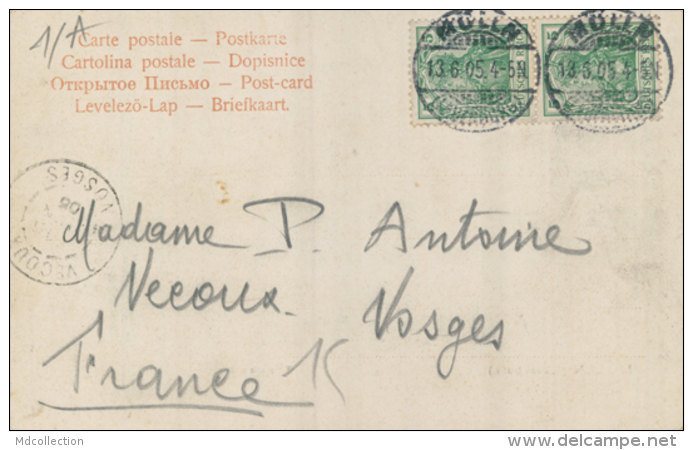 1/A
Carte postale — Postkarte
Cartolina postale — Dopisnice
Открытое Письмо — Post-card
Levelező-Lap — Briefkaart.
MÖLLN
13.6.05.4-5N
MÖLLN
13.6.05.4-
VOSGES
05
VECOUX
Madame P. Antoine
Vecoux. Vosges
France
Mdcollection
www.delcampe.net